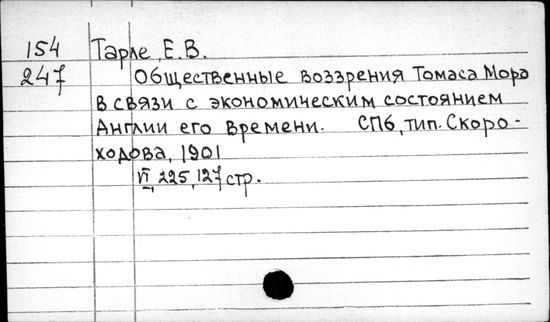 154 Тарле, Е.В.
247 Общественные воззрения Томаса Мора
в связи с экономическим состоянием
Англии его времени. СПб, тип. Скоро-
ходова, 1901
VI, 225, 127 стр.